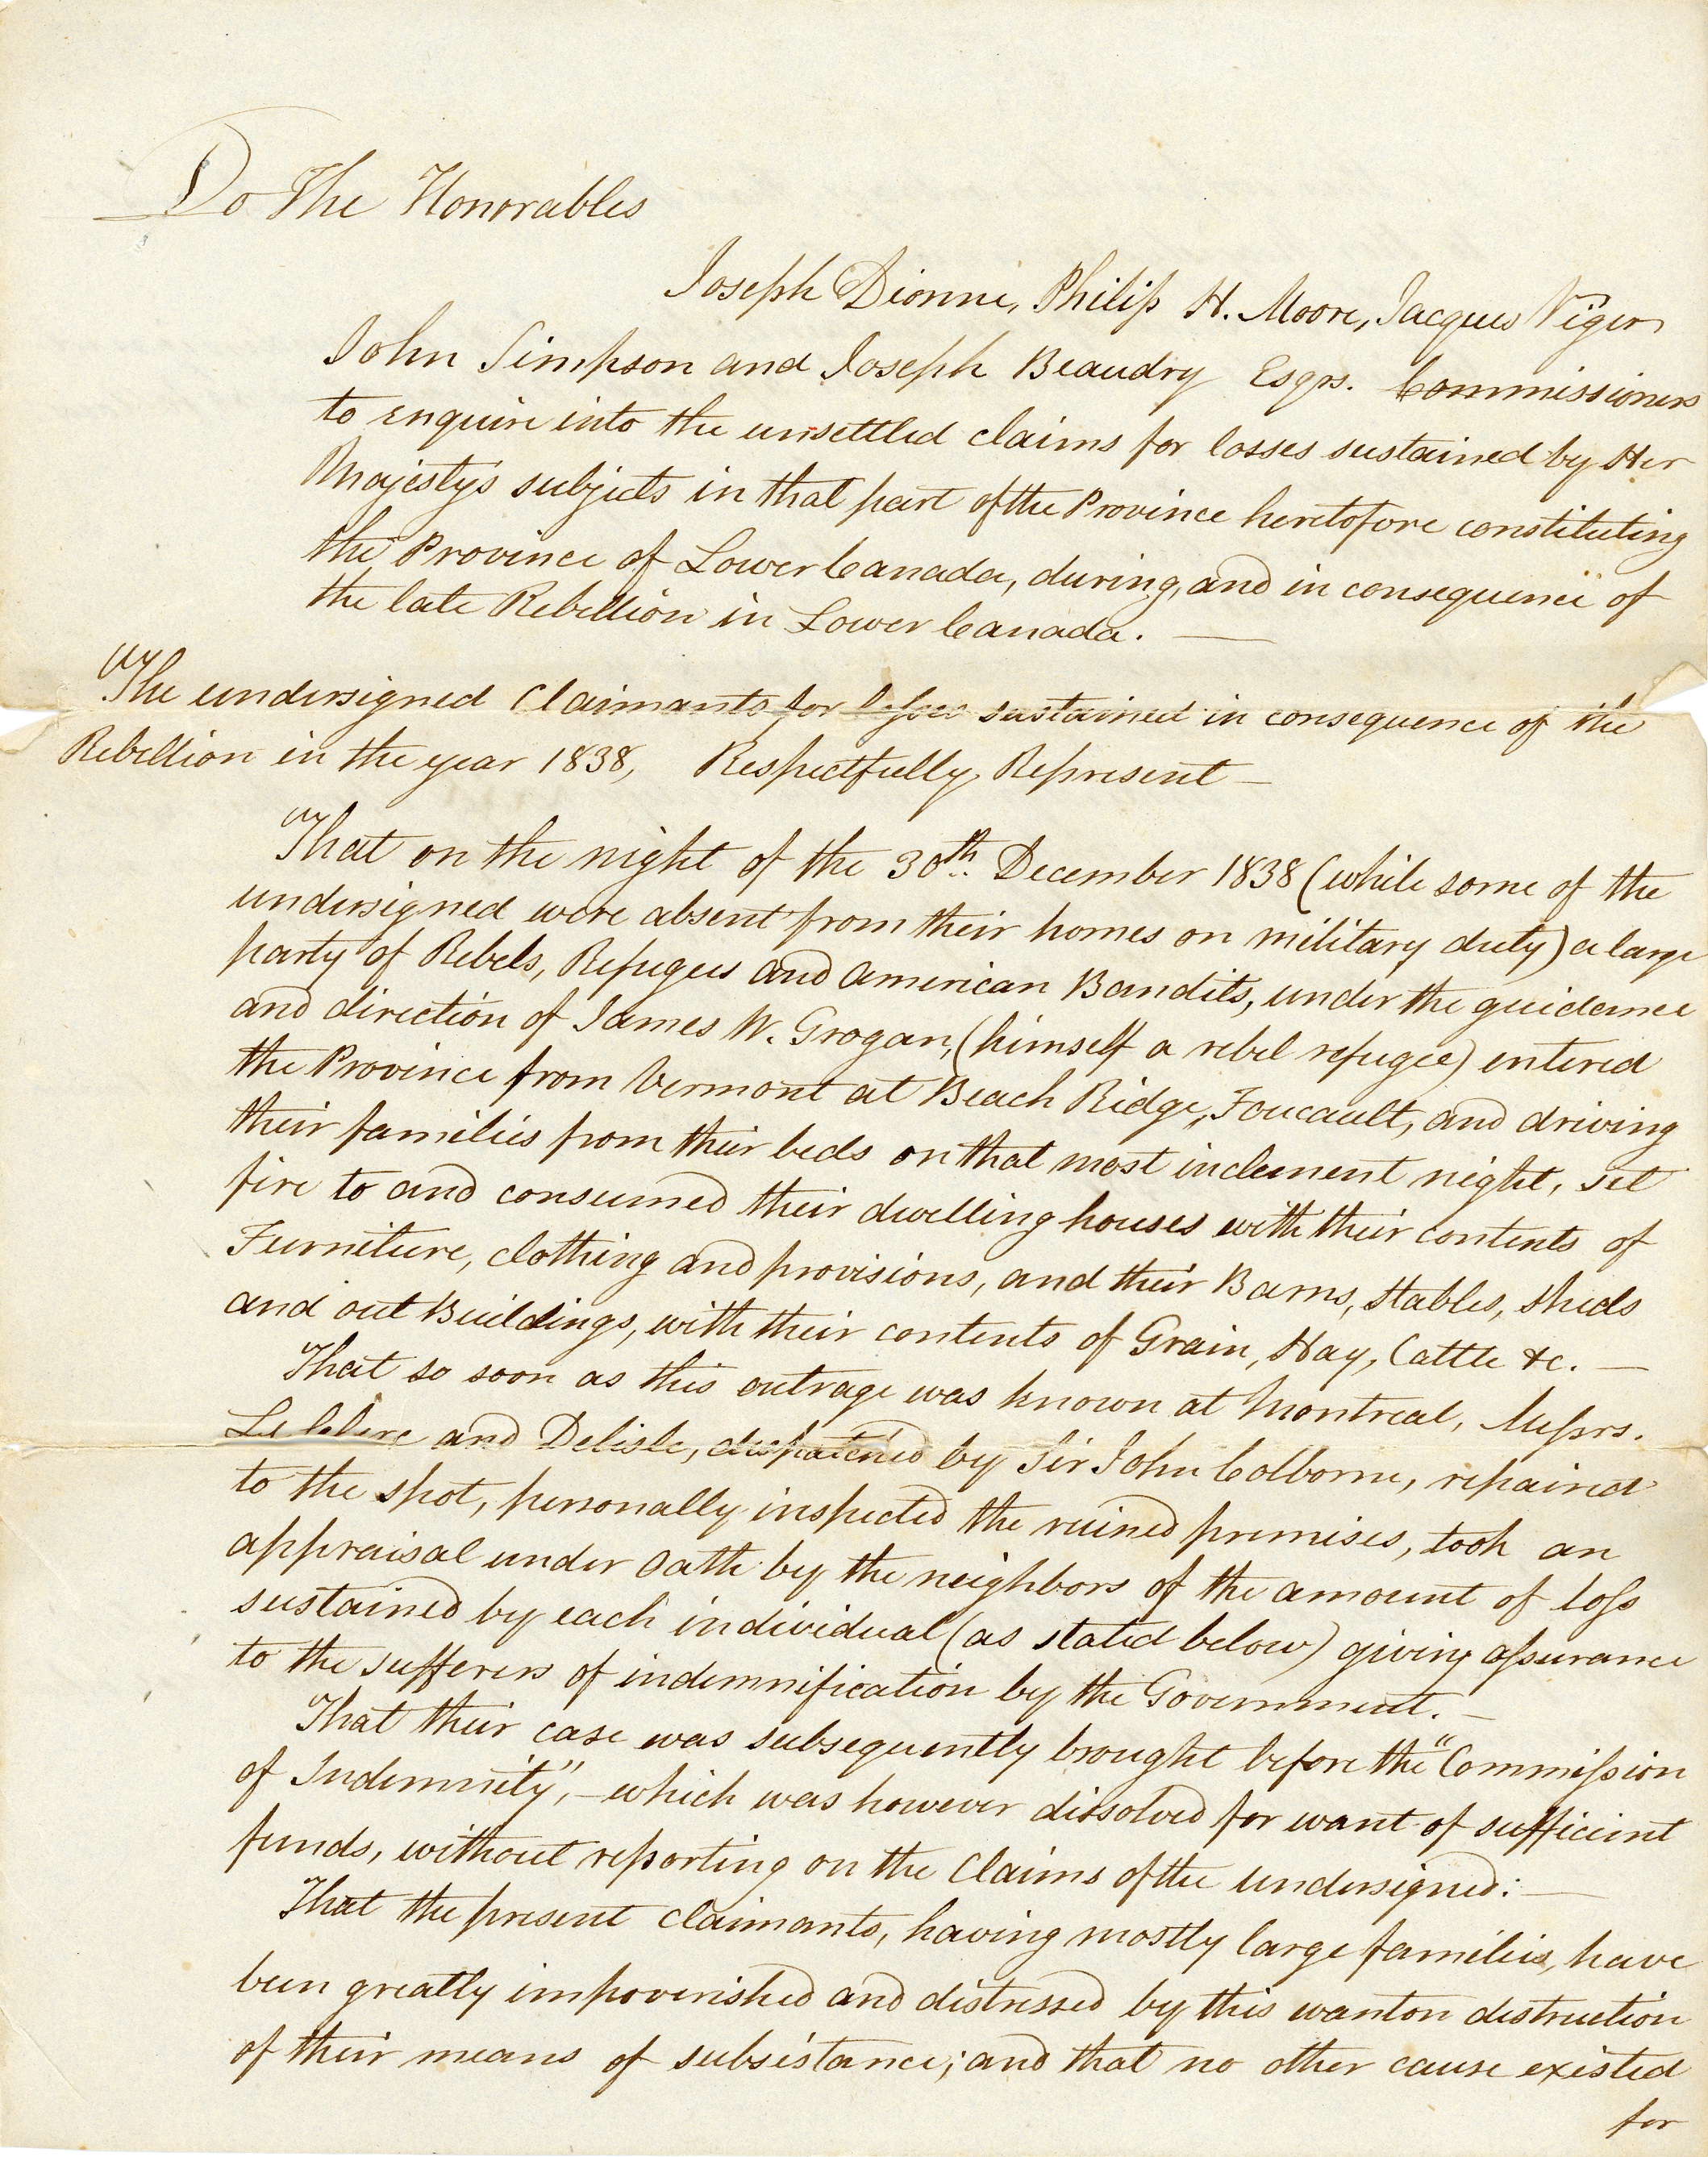 To The Honorables
Joseph Dionne, Philip H. Moore, Jacques Viger
John Simpson and Joseph Beaudry Esqrs. Commissioners
to enquire into the unsettled claims for losses sustained by Her
Majesty's subjects in that part of the Province heretofore constituting
the Province of Lower Canada, during, and in consequence of
the late Rebellion in Lower Canada. —
The undersigned Claimants for losses sustained in consequence of the
Rebellion in the year 1838, Respectfully Represent —
That on the night of the 30th December 1838 (while some of the
undersigned were absent from their homes on military duty) a large
party of Rebels, Refugees and American Bandits, under the guidance
and direction of James W. Grogan, (himself a rebel refugee) entered
the Province from Vermont at Beach Ridge, Foucault, and driving
their families from their beds on that most inclement night, set
fire to and consumed their dwelling houses with their contents of
Furniture, clothing and provisions, and their Barns, stables, sheds
and out Buildings, with their contents of Grain, Hay, Cattle &c. —
That so soon as this outrage was known at Montreal, Messrs.
and Delisle, dispatched by Sir John Colborne, repaired
to the spot, personally inspected the ruined premises, took an
appraisal under oath by the neighbors of the amount of loss
sustained by each individual (as stated below) giving assurance
to the sufferers of indemnification by the Government. —
That their case was subsequently brought before the "Commission
of Indemnity", – which was however dissolved for want of sufficient
funds, without reporting on the Claims of the undersigned: —
That the present claimants, having mostly large families, have
been greatly impoverished and distressed by this wanton distruction
of their means of subsistance; and that no other cause existed
for